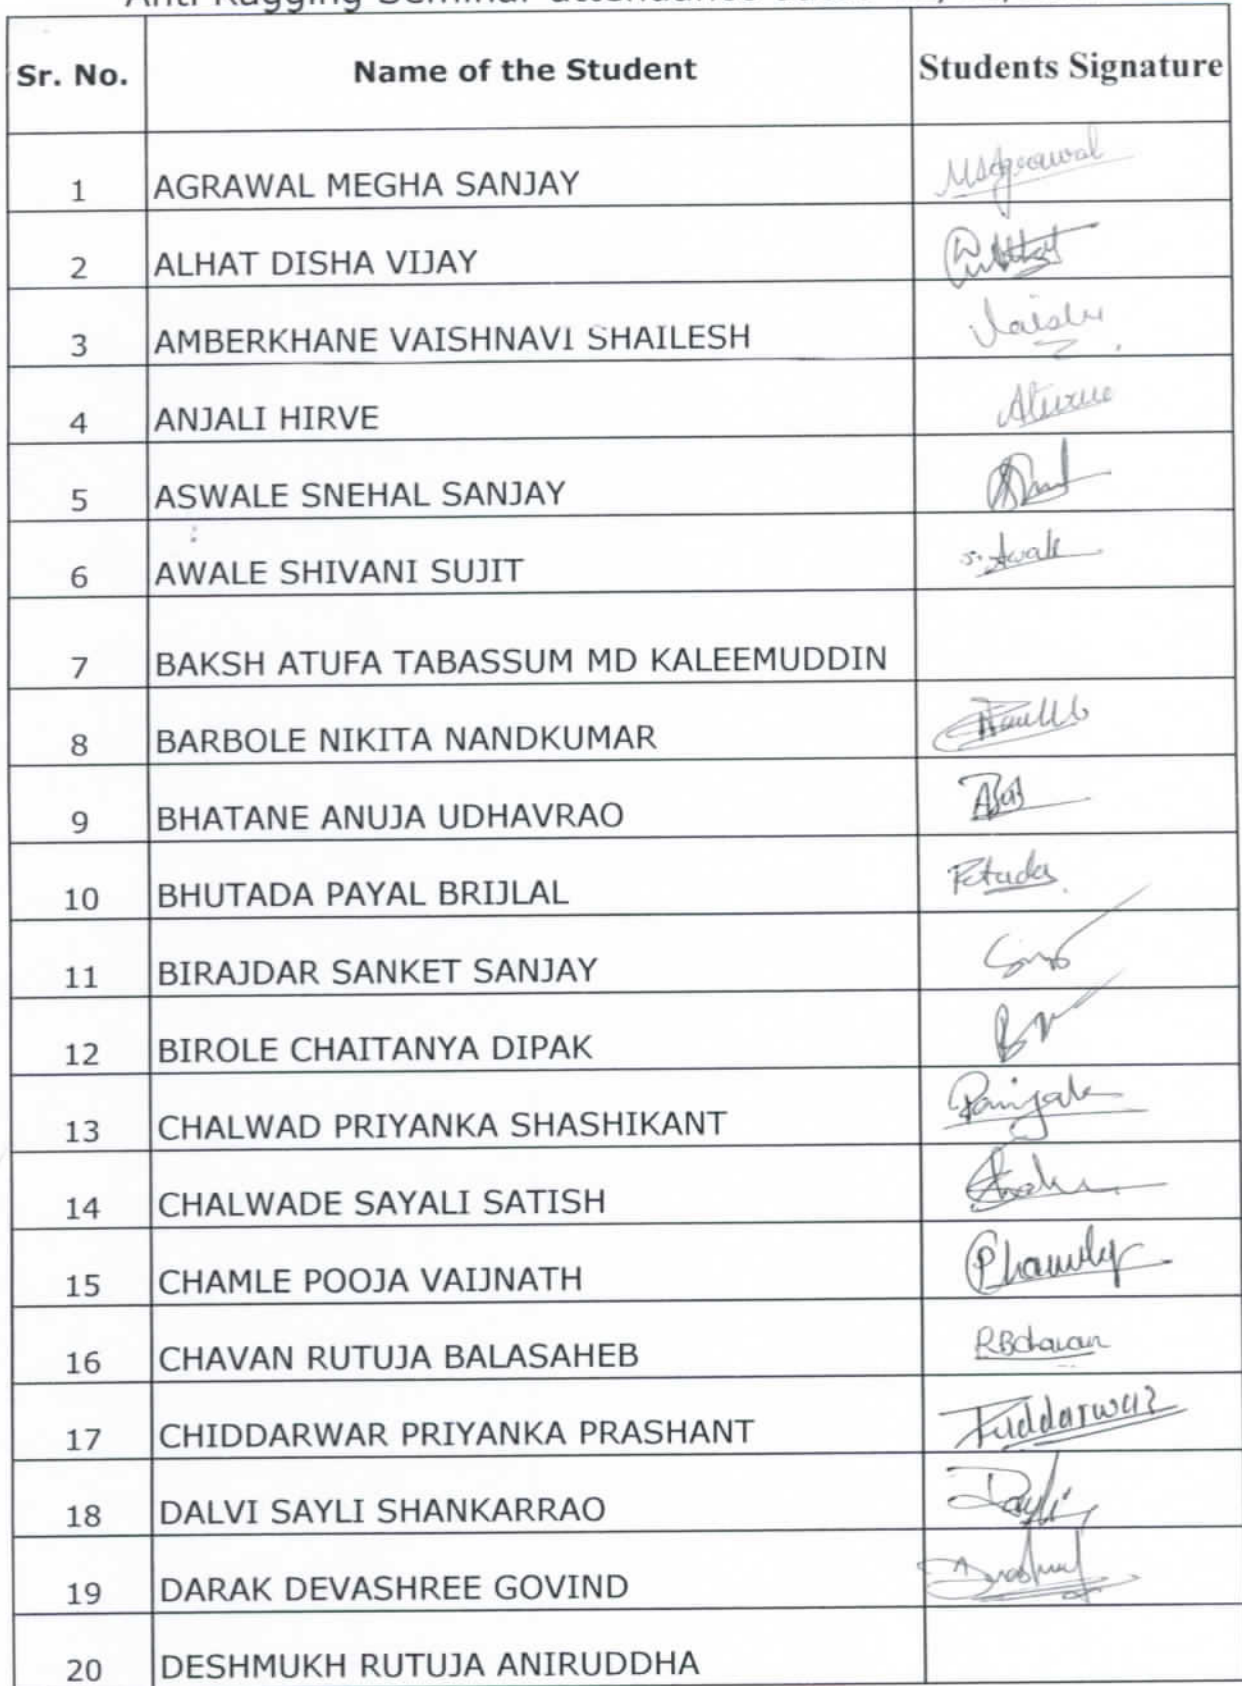 Anti Ragging Seminar attendance
Sr. No. Name of the Student Students Signature
1 AGRAWAL MEGHA SANJAY MSAgrawal
2 ALHAT DISHA VIJAY
3 AMBERKHANE VAISHNAVI SHAILESH Vaishu
4 ANJALI HIRVE
5 ASWALE SNEHAL SANJAY
6 AWALE SHIVANI SUJIT S. Awale
7 BAKSH ATUFA TABASSUM MD KALEEMUDDIN
8 BARBOLE NIKITA NANDKUMAR
9 BHATANE ANUJA UDHAVRAO
10 BHUTADA PAYAL BRIJLAL
11 BIRAJDAR SANKET SANJAY
12 BIROLE CHAITANYA DIPAK
13 CHALWAD PRIYANKA SHASHIKANT
14 CHALWADE SAYALI SATISH
15 CHAMLE POOJA VAIJNATH
16 CHAVAN RUTUJA BALASAHEB RBchavan
17 CHIDDARWAR PRIYANKA PRASHANT
18 DALVI SAYLI SHANKARRAO
19 DARAK DEVASHREE GOVIND
20 DESHMUKH RUTUJA ANIRUDDHA